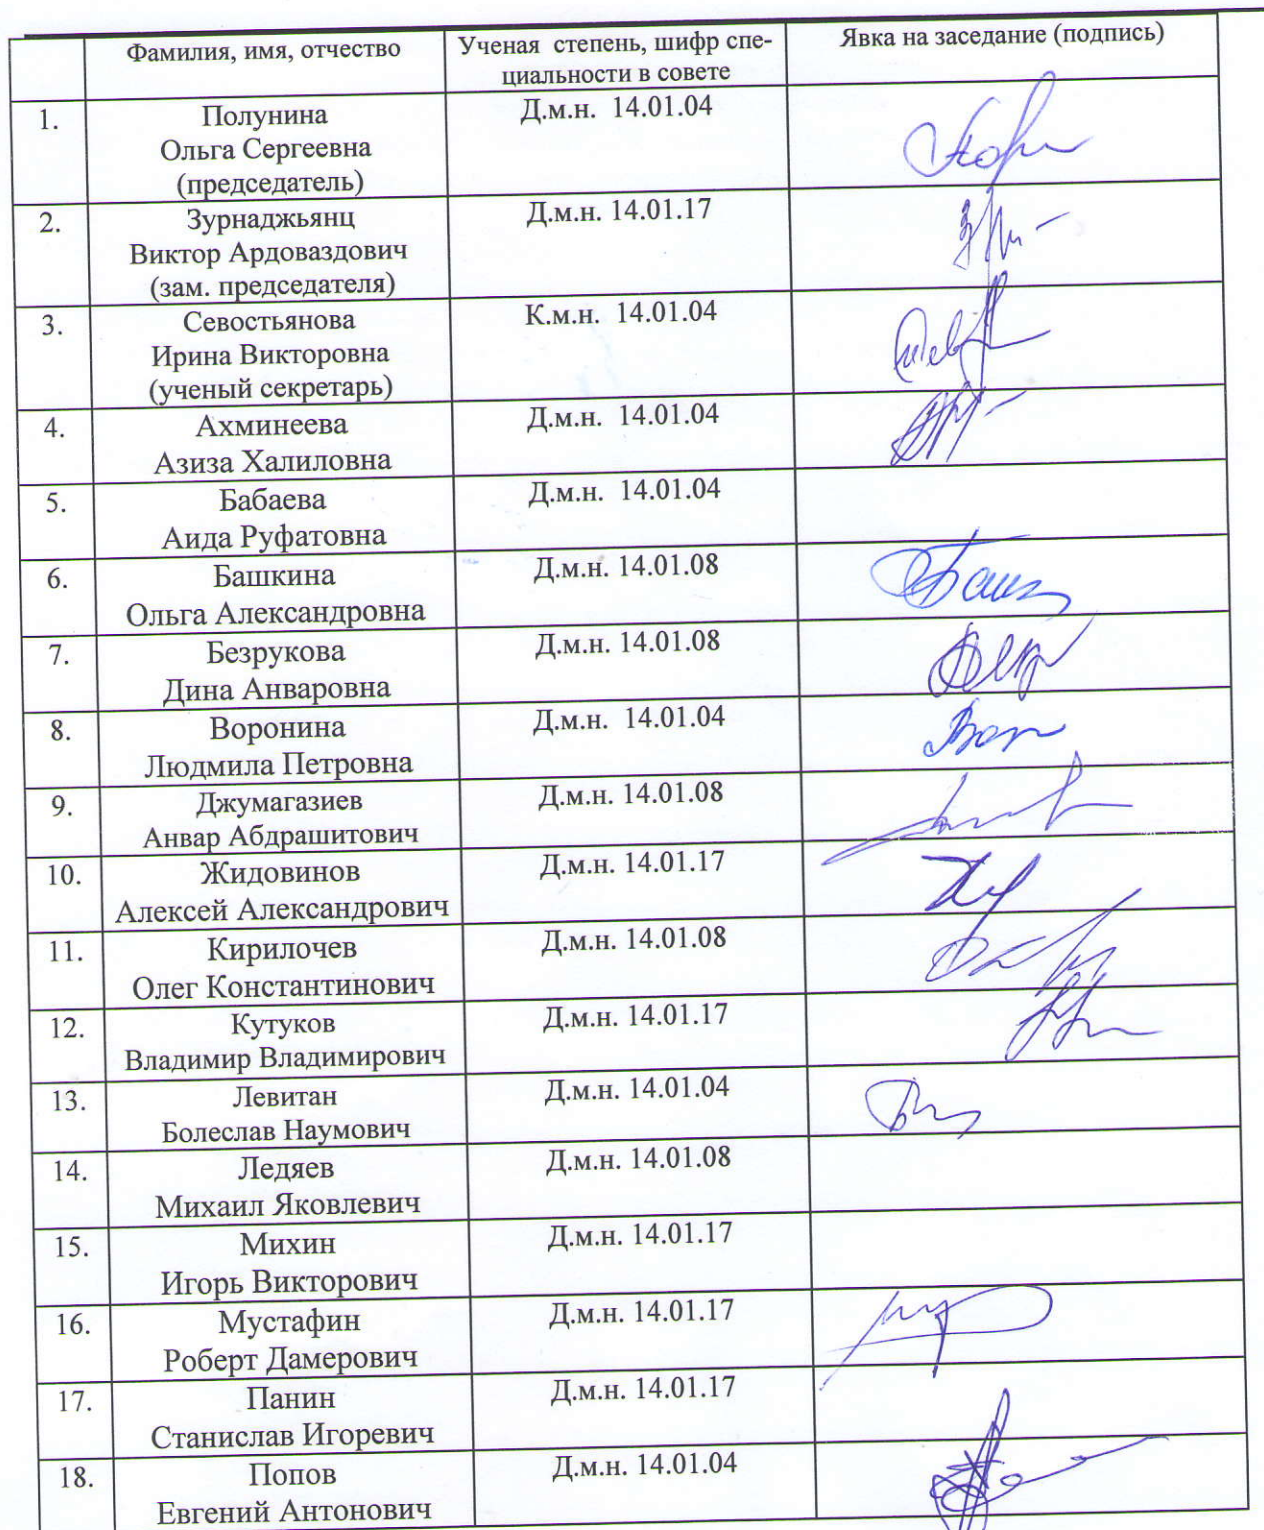 Фамилия, имя, отчество
Ученая степень, шифр спе-
циальности в совете
Явка на заседание (подпись)
1.
Полунина
Ольга Сергеевна
(председатель)
Д.м.н. 14.01.04
2.
Зурнаджьянц
Виктор Ардоваздович
(зам. председателя)
Д.м.н. 14.01.17
3.
Севостьянова
Ирина Викторовна
(ученый секретарь)
К.м.н. 14.01.04
4.
Ахминеева
Азиза Халиловна
Д.м.н. 14.01.04
5.
Бабаева
Аида Руфатовна
Д.м.н. 14.01.04
6.
Башкина
Ольга Александровна
Д.м.н. 14.01.08
7.
Безрукова
Дина Анваровна
Д.м.н. 14.01.08
8.
Воронина
Людмила Петровна
Д.м.н. 14.01.04
9.
Джумагазиев
Анвар Абдрашитович
Д.м.н. 14.01.08
10.
Жидовинов
Алексей Александрович
Д.м.н. 14.01.17
11.
Кирилочев
Олег Константинович
Д.м.н. 14.01.08
12.
Кутуков
Владимир Владимирович
Д.м.н. 14.01.17
13.
Левитан
Болеслав Наумович
Д.м.н. 14.01.04
14.
Ледяев
Михаил Яковлевич
Д.м.н. 14.01.08
15.
Михин
Игорь Викторович
Д.м.н. 14.01.17
16.
Мустафин
Роберт Дамерович
Д.м.н. 14.01.17
17.
Панин
Станислав Игоревич
Д.м.н. 14.01.17
18.
Попов
Евгений Антонович
Д.м.н. 14.01.04